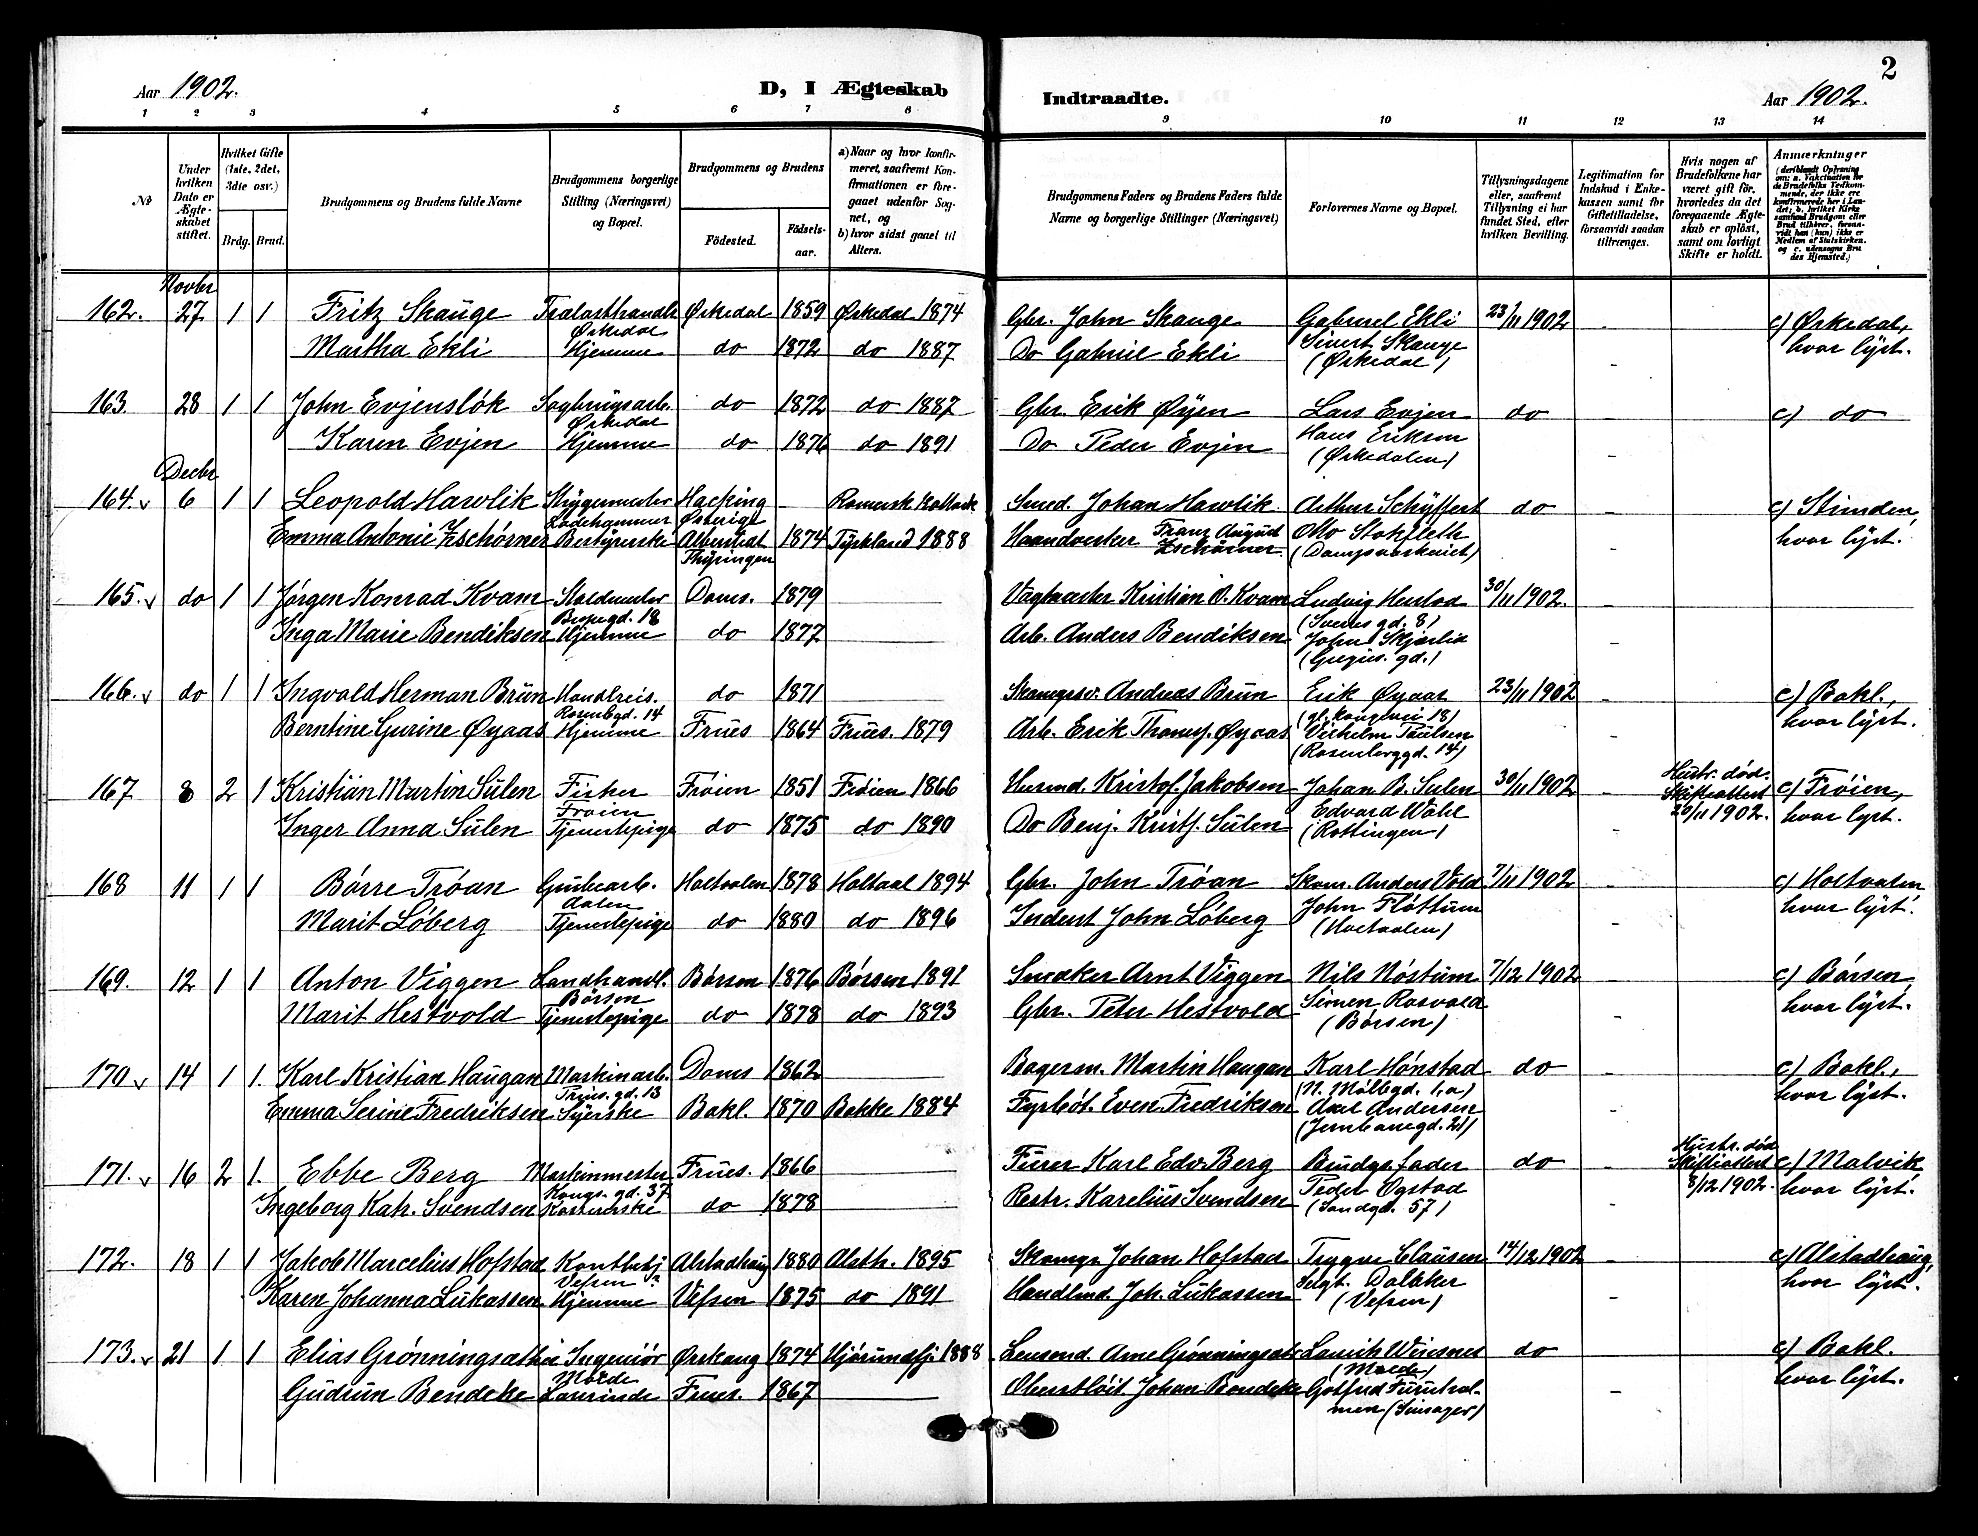 2
Aar 1902.
D, I Ægteskab
Indtraadte.
Aar 1902.
1 2 3 4 5 6 7 8 9 10 11 12 13 14
No
Under hvilken Dato er Ægteskabet stiftet.
Hvilket Gifte (1ste, 2det, 3die osv.)
Brdg. Brud.
Brudgommens og Brudens fulde Navne
Brudgommens borgerlige Stilling (Næringsvei) og Bopæl.
Brudgommens og Brudens
Födested. Födselsaar.
a) Naar og hvor konfirmeret, saafremt Konfirmationen er foregaaet udenfor Sognet, og
b) hvor sidst gaaet til Alters.
Brudgommens Faders og Brudens Faders fulde Navne og borgerlige Stillinger (Næringsvei)
Forlovernes Navne og Bopæl.
Tillysningsdagene eller, saafremt Tillysning ei har fundet Sted, efter hvilken Bevilling.
Legitimation for Indskud i Enkekassen samt for Giftetilladelse, forsaavidt saadan tiltrænges.
Hvis nogen af Brudefolkene har været gift för, hvorledes da det foregaaende Ægteskab er oplöst, samt om lovligt Skifte er holdt.
Anmærkninger
Novbr
162. 27 1 1 Fritz Skauge Trælasthandl. Ørkedal 1859 Ørkedal 1874 Gbr. John Skauge Gabriel Ekli 23/11 1902 - c) Ørkedal,
Ørkedal Sivert Skauge hvor lyst.
Martha Ekli Hjemme do 1872 do 1887 Do Gabriel Ekli (Ørkedal) -
163. 28 1 1 John Evjensløk Sagbrugsarb. do 1872 do 1887 Gbr. Erik Øyen Lars Evjen do - c) do
Ørkedal Hans Eriksen
Karen Evjen Hjemme do 1876 do 1891 Do Peder Evjen (Ørkedalen) -
Decbr
164. v 6 1 1 Leopold Hawlik Hacking - Romersk Katolsk Smed. Johan Hawlik Arthur Schyffert do - c) Strinden,
Ladehammer Østerige Otto Stokfleth hvor lyst.
Emma Antonie Zschörner Bestyrerske 1874 Tyskland 1888 Haandverker Franz August Zschörner -
Thyringen
165. v do 1 1 Jørgen Konrad Kvam Staldmester Doms. 1879 Vagtmester Kristian O. Kvam Ludvig Herstad 30/11 1902. -
Bispegd. 18 (Sverres gd. 8)
Inga Marie Bendiksen Hjemme do 1877 Arb. Anders Bendiksen John Skjærlia -
(Gregus. gd.)
166. v do 1 1 Ingvald Herman Brun Handlreis. do 1871 Skomgsv. Andreas Brun Erik Øyaas 23/11 1902 - c) Bakl.,
Rosenbgd. 14 (gl. kongevei 18) hvor lyst.
Berntine Gurine Øyaas Hjemme Frues 1864 Frues. 1879 Arb. Erik Thomes. Øyaas Vilhelm Paulsen -
(Rosenborggd. 14)
167 8 2 1 Kristian Martin Sulen Fisker Frøien 1851 Frøien 1866 Husmd. Kristof. Jakobsen Johan B. Sulen 30/11 1902 - Hustr. død. Skifteattest 20/11 1902. c) Frøien,
Frøien Edvard Wahl hvor lyst.
Inger Anna Sulen Tjenestepige do 1875 do 1890 Do Benj. Kristf. Sulen (Rottingen) -
168 11 1 1 Børre Trøan Grubearb. Holtaalen 1878 Holtaal 1894 Gbr. John Trøan Skom. Anders Vold 7/11 1902 - c) Holtaalen
dalen John Fløttum hvor lyst.
Marit Løberg Tjenestepige do 1880 do 1896 Inderst John Løberg (Holtaalen) -
169. 12 1 1 Anton Viggen Landhandl. Børsen 1876 Børsen 1891 Snedker Arnt Viggen Nils Nøstum 7/12 1902 - c) Børsen,
Børsen Simen Rosvold hvor lyst.
Marit Hestvold Tjenestepige do 1878 do 1893 Gbr. Peter Hestvold (Børsen) -
170 v 14 1 1. Karl Kristian Haugan Maskinarb. Doms 1862 Bagersv. Martin Haugan Karl Hønstad do - c) Bakl.,
Prins. gd. 13 (N. Møllegd. 1, a) hvor lyst.
Emma Serine Fredriksen Syerske Bakl. 1870 Bakke 1884 Fyrbøt. Even Fredriksen Axel Andersen -
(Jernbanegd. 21)
171. v 16 2 1. Ebbe Berg Maskinmester Frues. 1866 Furer Karl Edv. Berg Brudgs. fader do - Hustr. død Skifteattest 8/12 1902. c) Malvik
Kongs. gd. 37 Peder Øgstad hvor lyst.
Ingeborg Katr. Svendsen Kassererske do 1878 Restr. Karelius Svendsen (Sandgd. 57) -
172. 18 1 1 Jakob Marcelius Hofstad Alstadhaug 1880 Alsth. 1895 Skomgr. Johan Hofstad Trygve Clausen 14/12 1902 - c) Alstadhaug,
Vefsen Sergt. Dalkker hvor lyst.
Karen Johanna Lukassen Hjemme Vefsen 1875 do 1891 Handlmd. Joh. Lukassen (Vefsen) -
173. v 21 1 1 Elias Grønningsæther Ingeniør Ørskaug 1874 Hjørundfj. 1888 Lensmd. Arne Grønningsæter Lauritz Weisnes do - c) Bakl.
Molde (Molde) hvor lyst.
Gudrun Bendeke Lærerinde Frues. 1867 Oberstløit Johan Bendeke Gotfred Furuholmen (Sinsager) -